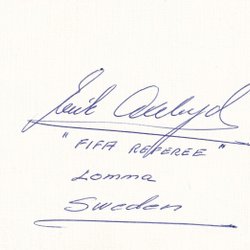 Erik Axelryd
"FIFA REFEREE"
Lomma
Sweden